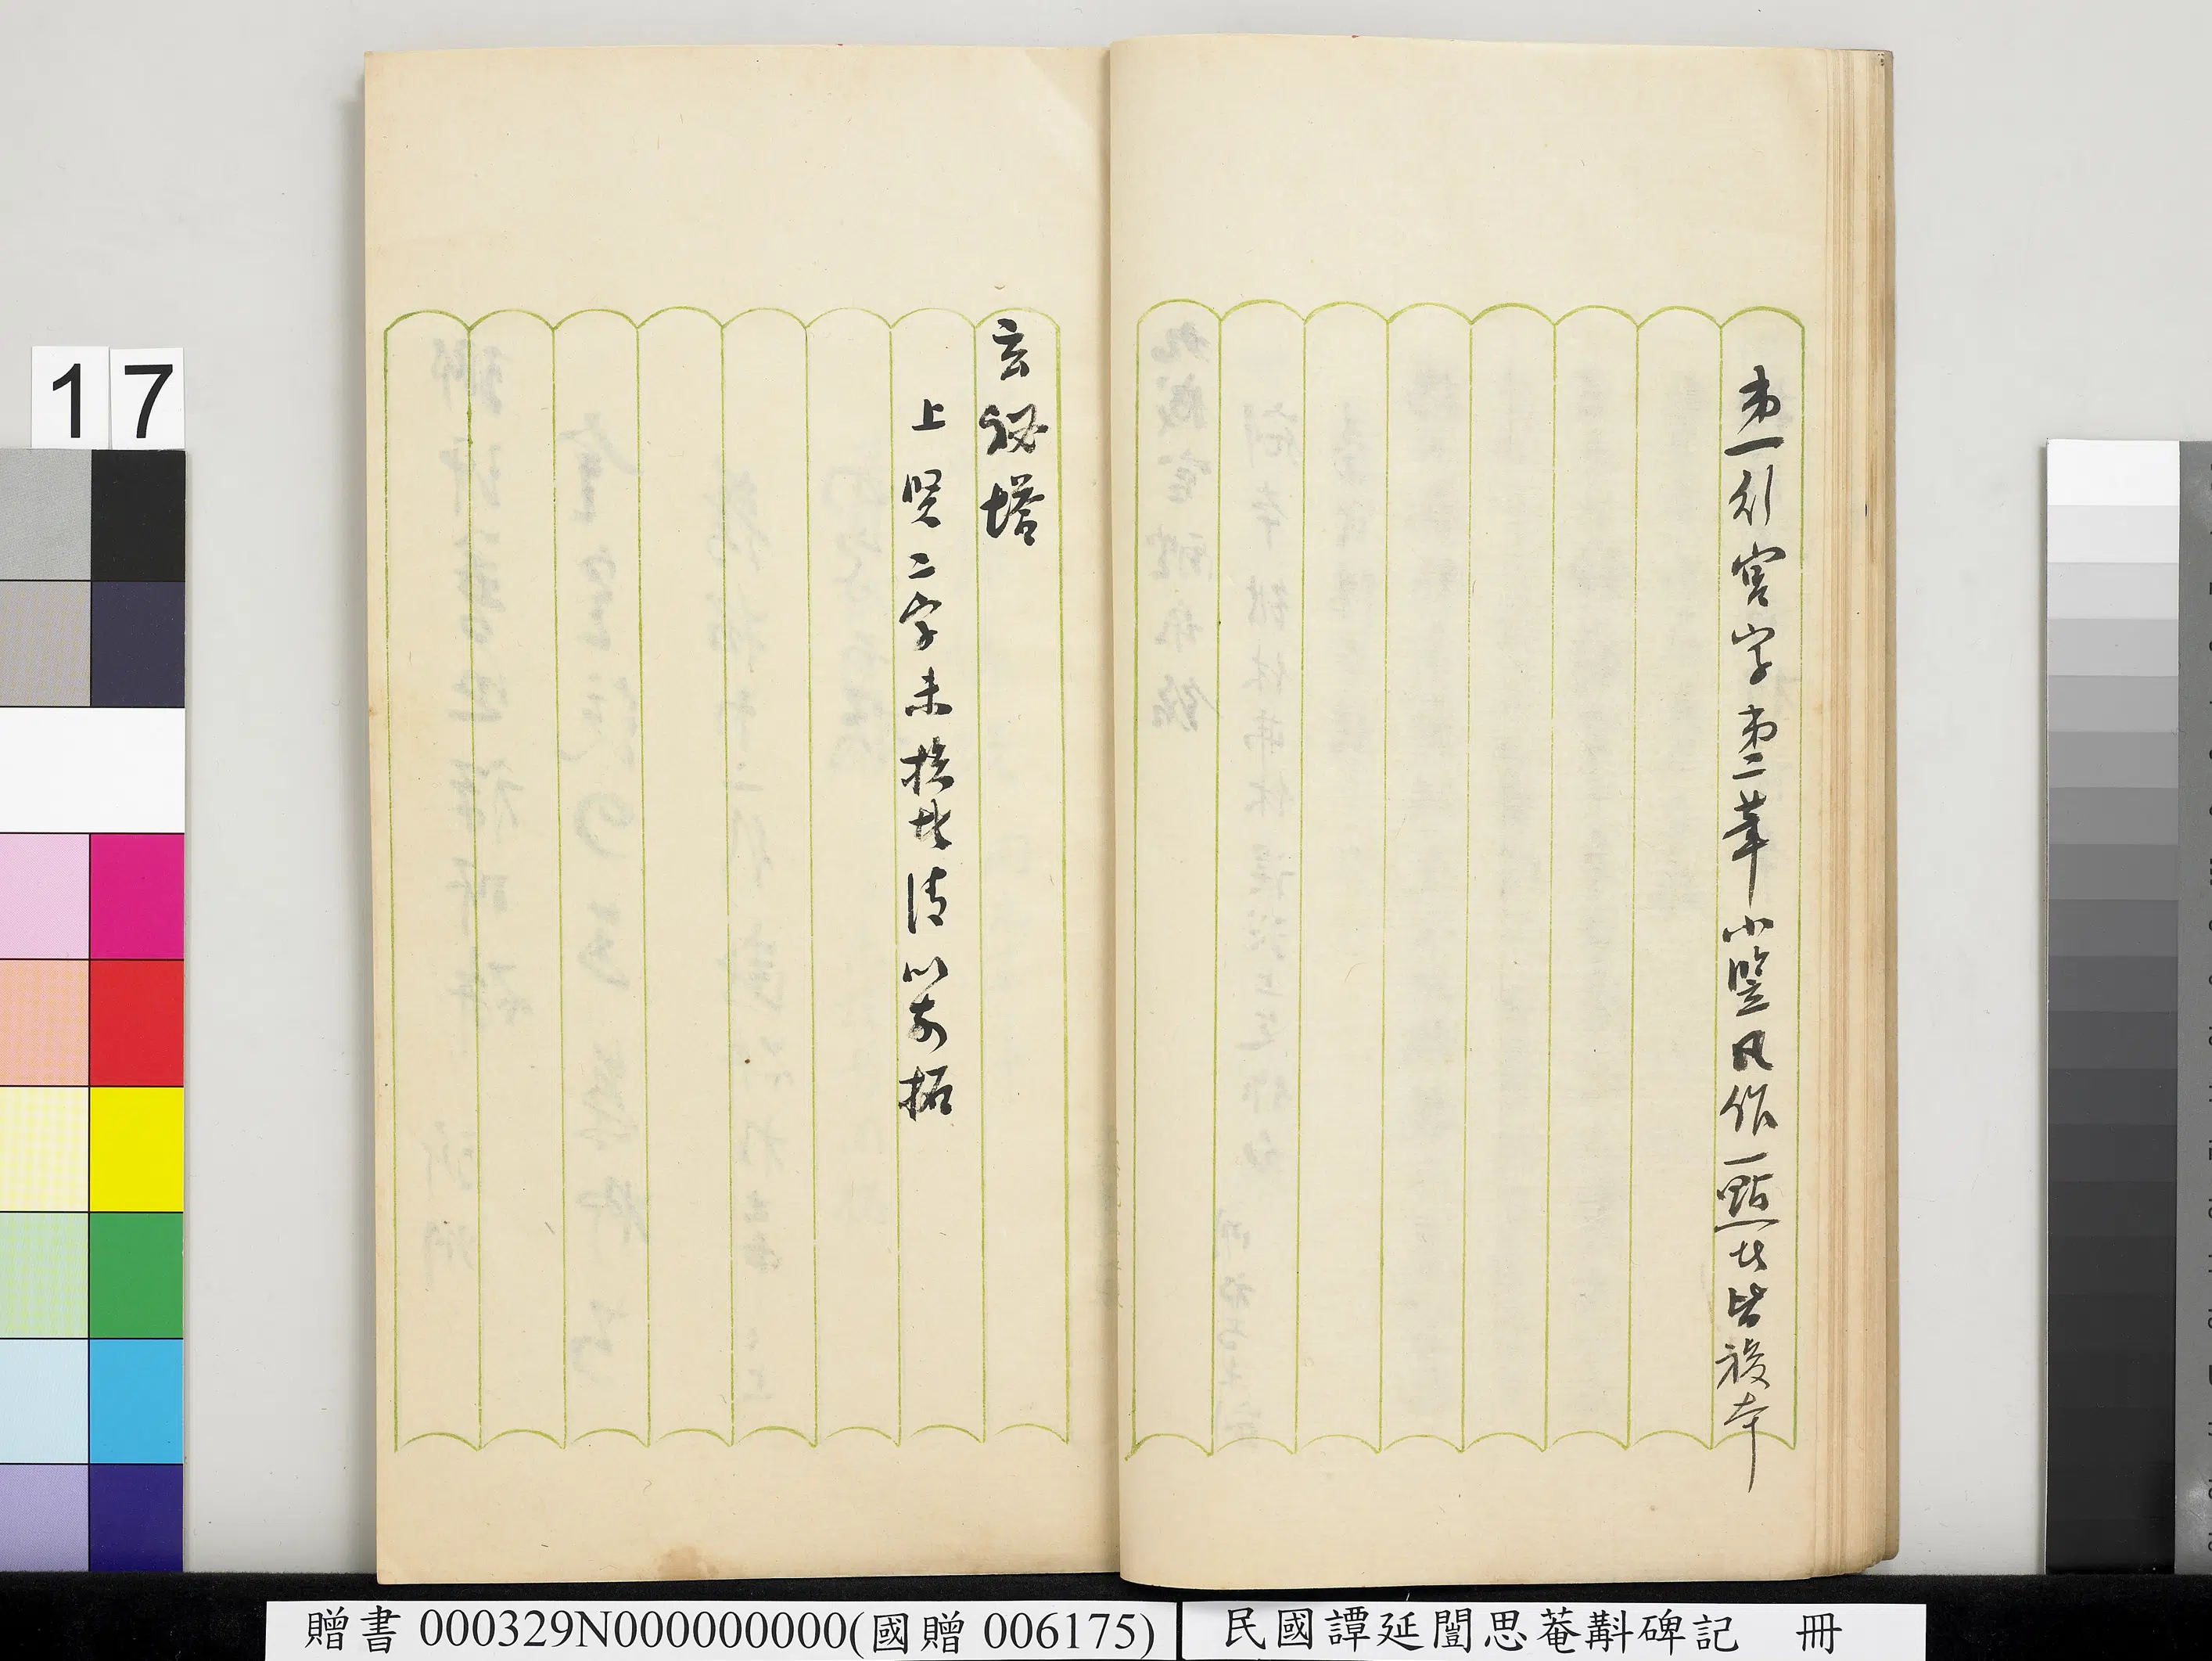 第一行宮字第二筆小豎只作一點此皆複本
玄祕塔
上賢二字未損皆清以前拓
17
贈書 000329N000000000(國贈 006175)
民國譚延闓思菴斠碑記 冊